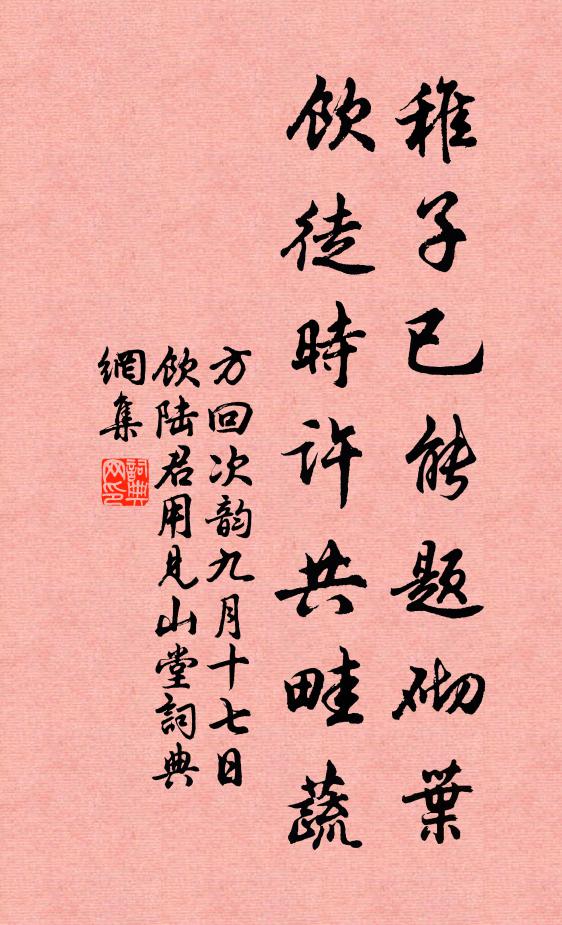 稚子已能題砌葉
飲徒時許共畦蔬
方回次韵九月十七日
飲陆君用見山堂詞典
網集
詞典網印